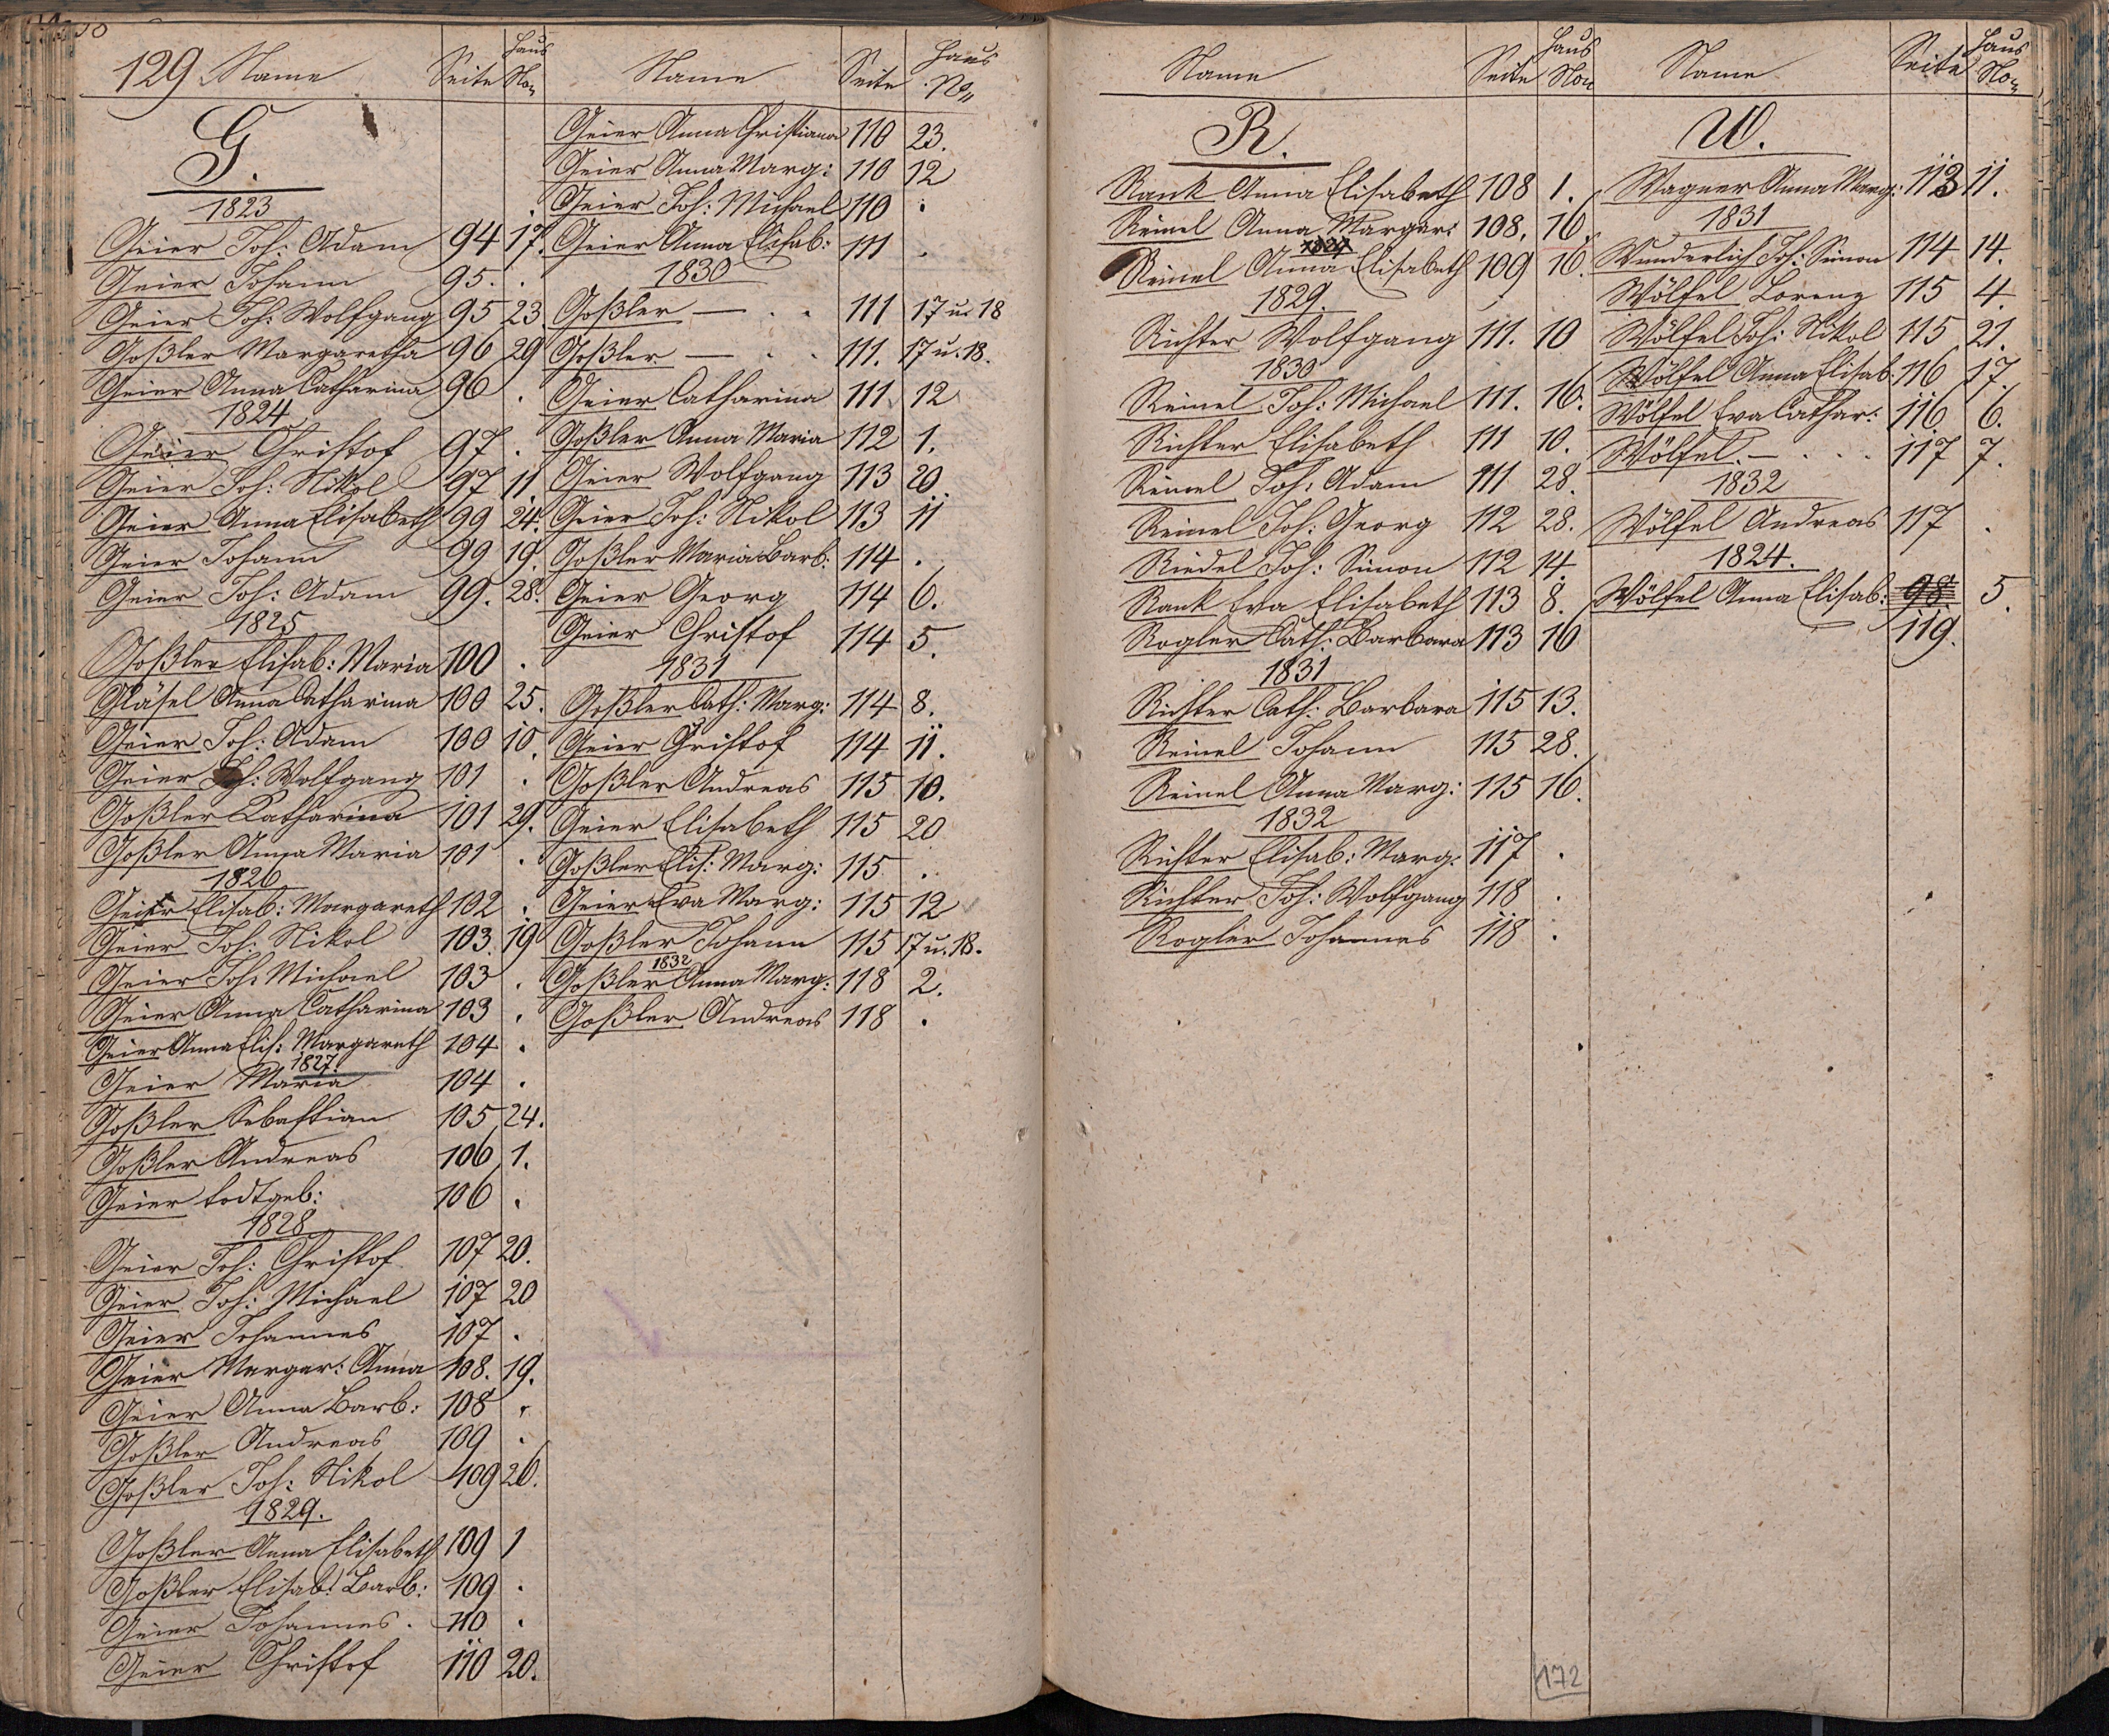 129 Name Seite Haus No
G.
1823
Geier Joh: Adam 94 17.
Geier Johann 95 .
Geier Joh: Wolfgang 95 23.
Goßler Margaretha 96 29
Geier Anna Catharina 96 .
1824
Geier Christof 97 .
Geier Joh: Nikol 97 11
Geier Anna Elisabeth 99 24.
Geier Johann 99 19.
Geier Joh: Adam 99. 28.
1825
Goßler Elisab: Maria 100 .
Gläsel Anna Catharina 100 25.
Geier Joh: Adam 100 10.
Geier Joh: Wolfgang 101 .
Goßler Katharina 101 29.
Goßler Anna Maria 101 .
1826
Geier Elisab: Margareth 102 .
Geier Joh: Nikol 103 19
Geier Joh: Michael 103 .
Geier Anna Catharina 103 .
Geier Anna Elis: Margareth 104 .
1827.
Geier Maria 104 .
Goßler Sebastian 105 24.
Goßler Andreas 106 1.
Geier todtgeb: 106 .
1828
Geier Joh: Christof 107 20.
Geier Joh: Michael 107 20
Geier Johannes 107 .
Geier Margar: Anna 108. 19.
Geier Anna Barb: 108 .
Goßler Andreas 109 .
Goßler Joh: Nikol 109 26.
1829.
Goßler Anna Elisabeth 109 1
Goßler Elisab: Barb: 109 .
Geier Johannes. 110 .
Geier Christof 110 20.
Name Seite Haus No
Geier Anna Christiana 110 23.
Geier Anna Marg: 110 12
Geier Joh: Michael 110 .
Geier Anna Elisab: 111 .
1830
Goßler — . . 111 17 u. 18
Goßler — . . 111. 17 u. 18.
Geier Catharina 111 12
Goßler Anna Maria 112 1.
Geier Wolfgang 113 20
Geier Joh: Nikol 113 11
Goßler Maria Barb: 114 .
Geier Georg 114 6.
Geier Christof 114 5.
1831
Goßler Cath: Marg: 114 8.
Geier Christof 114 11.
Goßler Andreas 115 10.
Geier Elisabeth 115 20
Goßler Elis: Marg: 115 .
Geier Eva Marg: 115 12
Goßler Johann 115 17 u. 18.
1832
Goßler Anna Marg: 118 2.
Goßler Andreas 118 .
Name Seite Haus No
R.
Rank Anna Elisabeth 108 1.
Reinel Anna Margar: 108. 16.
Reinel Anna Elisabeth 109 16.
1829.
Richter Wolfgang 111. 10
1830
Reinel Joh: Michael 111. 16.
Richter Elisabeth 111 10.
Reinel Joh: Adam 111 28.
Reinel Joh: Georg 112 28.
Riedel Joh: Simon 112 14.
Rank Eva Elisabeth 113 8.
Rogler Cath: Barbara 113 16
1831
Richter Cath: Barbara 115 13.
Reinel Johann 115 28.
Reinel Anna Marg: 115 16.
1832
Richter Elisab: Marg: 117 .
Richter Joh: Wolfgang 118 .
Rogler Johannes 118 .
Name Seite Haus No
W.
Wagner Anna Marg: 113 11.
1831
Wunderlich Joh: Simon 114 14.
Wölfel Lorenz 115 4.
Wölfel Joh: Nikol 115 21.
Wölfel Anna Elisab: 116 17.
Wölfel Eva Cathar: 116 6.
Wölfel. — . . . 117 7.
1832
Wölfel Andreas 117 .
1824.
Wölfel Anna Elisab: 98 5.
119.
172